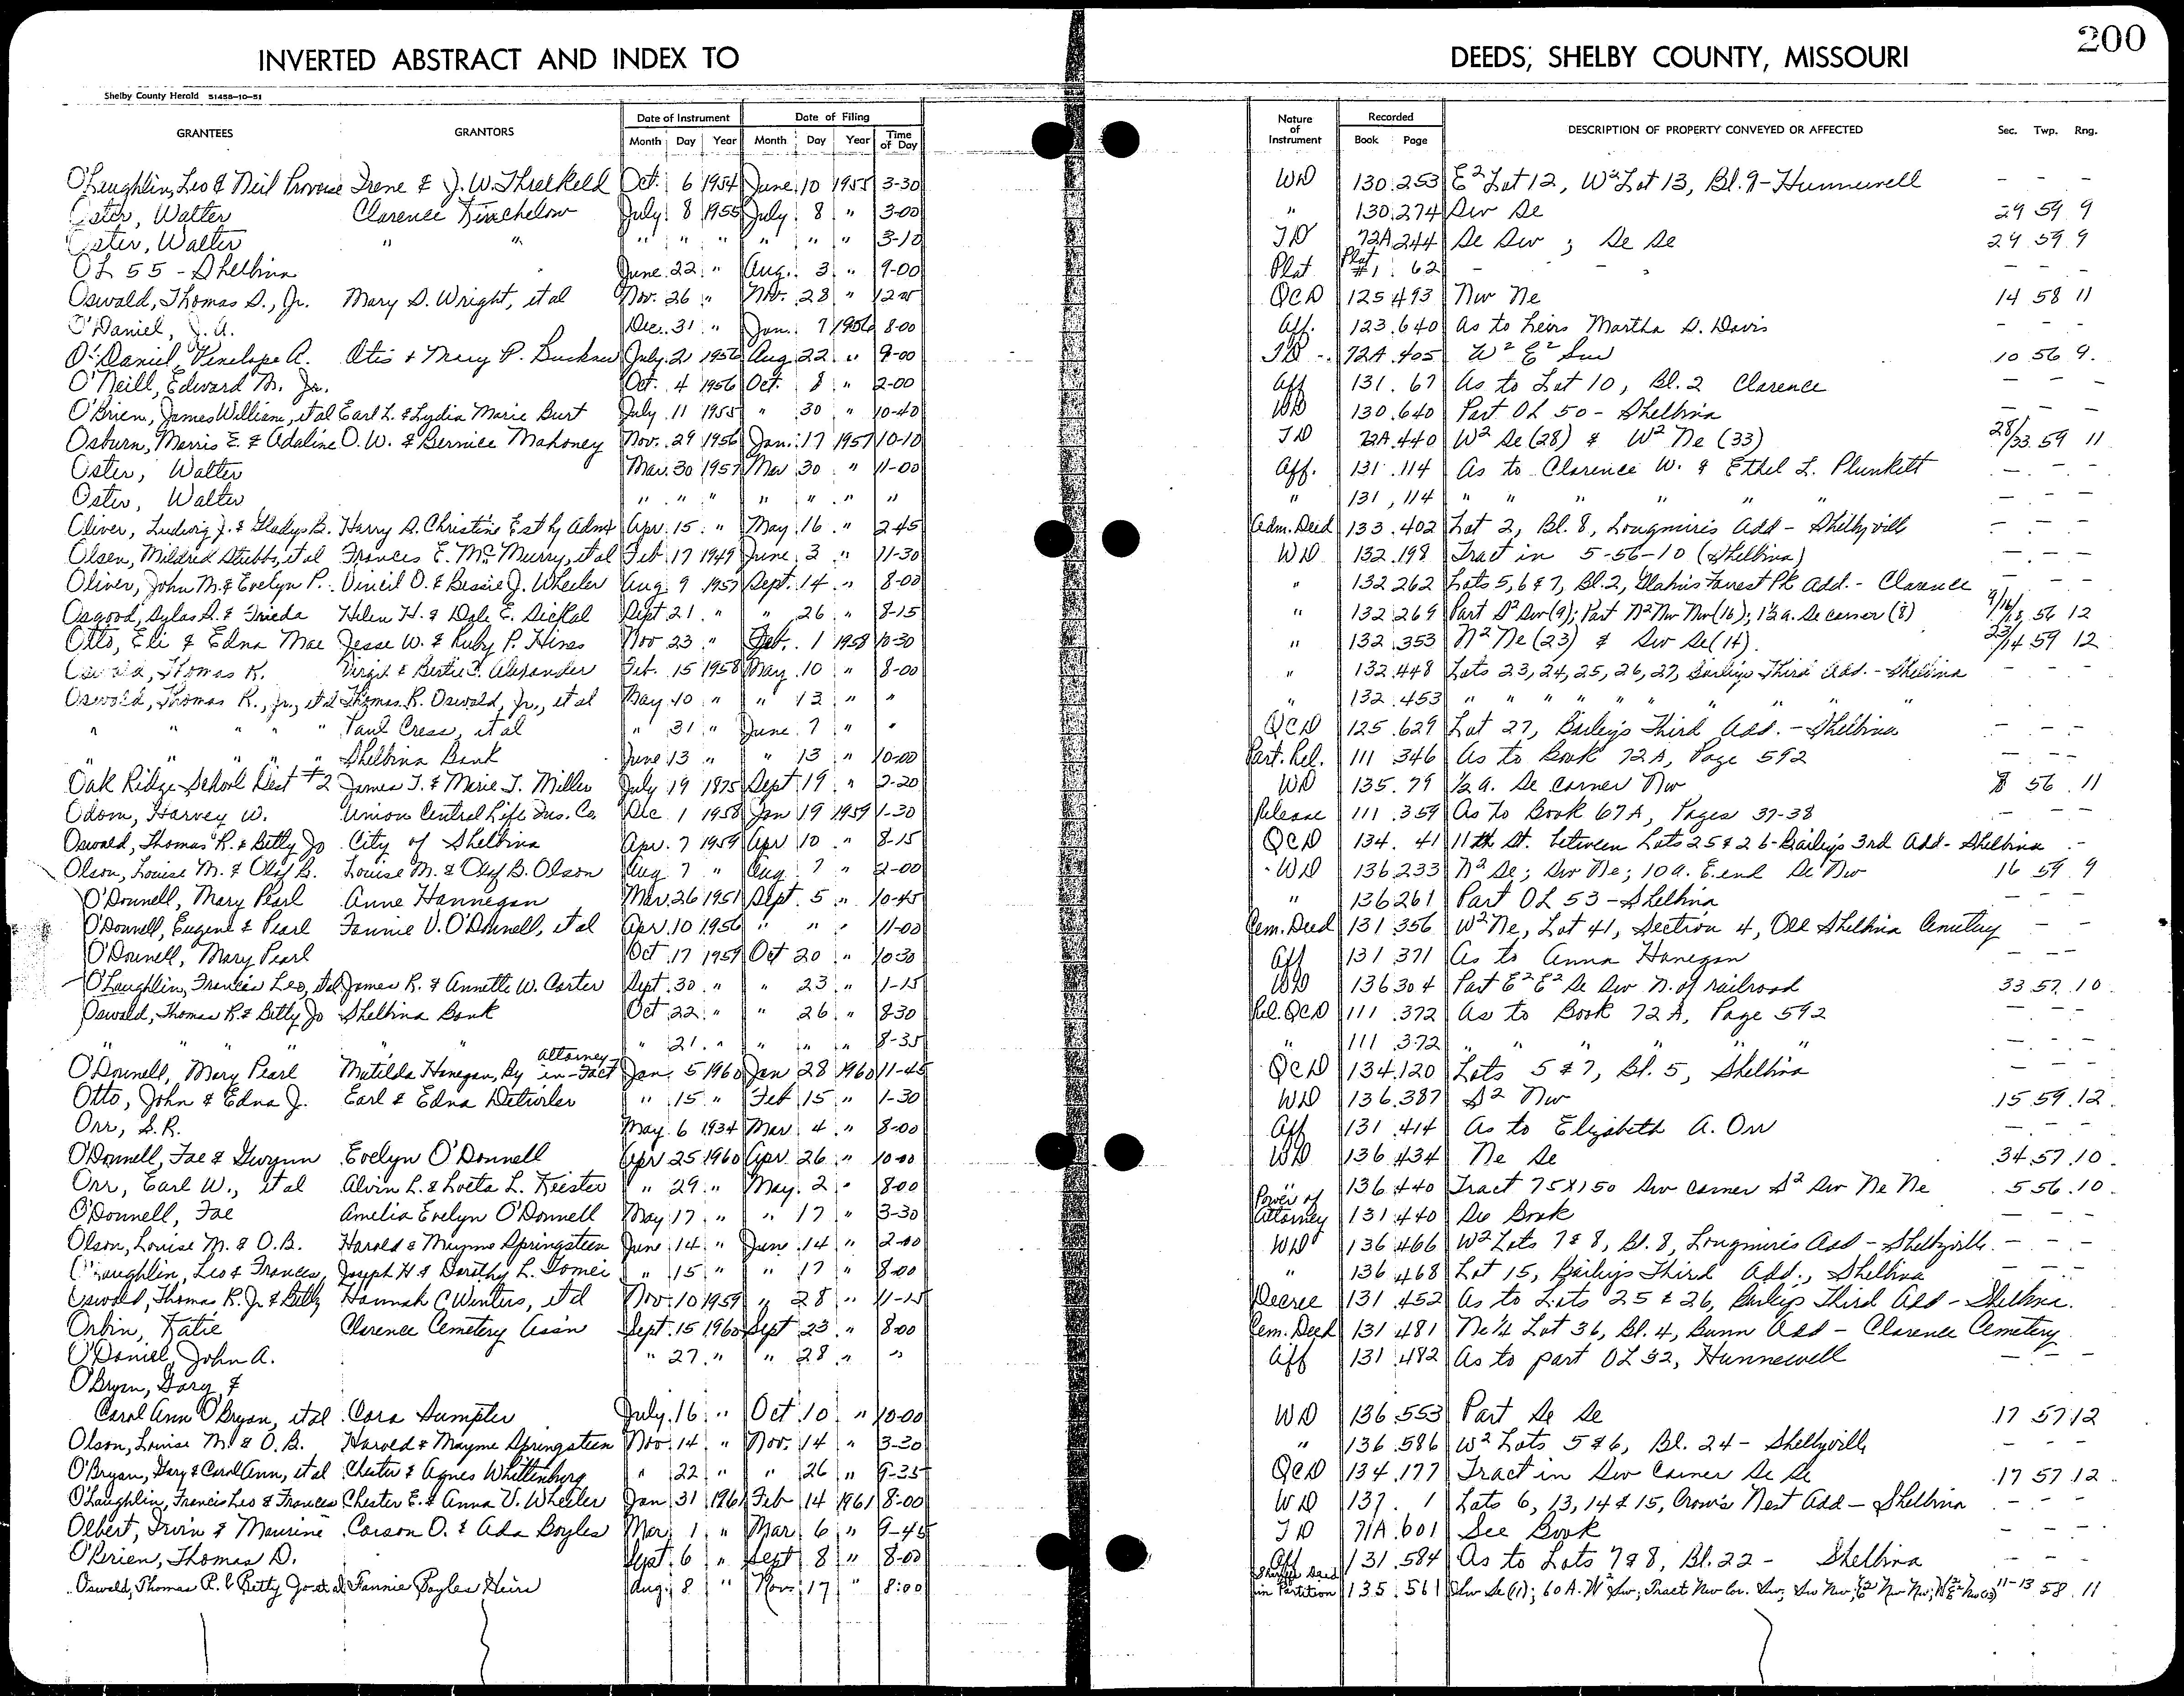 200
INVERTED ABSTRACT AND INDEX TO DEEDS, SHELBY COUNTY, MISSOURI
Shelby County Herald 51458-10-51
GRANTEES GRANTORS Date of Instrument Date of Filing Nature of Instrument Recorded DESCRIPTION OF PROPERTY CONVEYED OR AFFECTED Sec. Twp. Rng.
Month Day Year Month Day Year Time of Day Book Page
O'Laughlin, Leo & Neil Irene & J. W. Threlkeld Oct. 6 1954 June 10 1955 3-30 WD 130 253 E2 Lot 12, W2 Lot 13, Bl. 9 - Hunnewell - - -
Oster, Walter Clarence Kinchelow July 8 1955 July 8 " 3-00 " 130 274 Sw Se 29 59 9
Oster, Walter " " " " " " " " 3-10 TD 72A 244 Se Sw ; Se Se 29 59 9
OL 55 - Shelbina June 22 " Aug. 3 " 9-00 Plat Plat #1 62 - - - - - -
Oswald, Thomas S., Jr. Mary S. Wright, et al Nov. 26 " Nov. 28 " QCD 125 493 Nw Ne 14 58 11
O'Daniel, J. A. Dec. 31 " Jan. 7 1956 8-00 Aff. 123 640 As to heirs Martha S. Davis - - -
O'Daniel, Penelope A. Otis & Mary P. Buckner July 21 1956 Aug 22 " 9-00 TD 72A 405 W2 E2 Sw 10 56 9
O'Neill, Edward M. Jr. Oct. 4 1956 Oct. 8 " 2-00 Aff 131 67 As to Lot 10, Bl. 2 Clarence - - -
O'Brien, James William, et al Earl L. & Lydia Marie Burt July 11 1955 " 30 " 10-40 WD 130 640 Part OL 50 - Shelbina - - -
Osburn, Morris E. & Adaline O. W. & Bernice Mahoney Nov. 29 1956 Jan. 17 1957 10-10 TD 72A 440 W2 Se (28) & W2 Ne (33) 28/33 59 11
Oster, Walter Mar. 30 1957 Mar 30 " 11-00 Aff. 131 114 As to Clarence W. & Ethel L. Plunkett - - -
Oster, Walter " " " " " " " " 131 114 " " " " " " - - -
Oliver, Ludwig J. & Gladys B. Harry S. Christine Est by Admx Apr. 15 " May 16 " 2-45 Adm. Deed 133 402 Lot 2, Bl. 8, Longmire's Add - Shelbyville - - -
Olsen, Mildred Stubbs, et al Frances E. McMurry, et al Feb 17 1949 June 3 " 11-30 WD 132 198 Tract in 5-56-10 (Shelbina) - - -
Oliver, John M. & Evelyn P. Vincil O. & Bessie J. Wheeler Aug 9 1957 Sept. 14 " 8-00 " 132 262 Lots 5, 6 & 7, Bl. 2, Forrest Pk Add. - Clarence - - -
Osgood, Sylas S. & Frieda Helen H. & Dale E. Sept 21 " " 26 " 8-15 " 132 269 Part S2 Sw (9); Part N2 Nw Nw (16); 1½ a. Se corner (8) 56 12
Otto, Eli & Edna Mae Jesse W. & Ruby P. Hines Nov 23 " Feb. 1 1958 10-30 " 132 353 N2 Ne (23) & Sw Se (14) 23/14 59 12
Oswald, Thomas R. Virgil & Bertie J. Alexander Feb. 15 1958 May 10 " 8-00 " 132 448 Lots 23, 24, 25, 26, 27, Bailey's Third Add. - Shelbina - - -
Oswald, Thomas R., Jr., et al Thomas R. Oswald, Jr., et al May 10 " " 13 " " " 132 453 " " " " " " " " "
" " " " " Paul Cress, et al " 31 " June 7 " " QCD 125 629 Lot 27, Bailey's Third Add. - Shelbina - - -
" " " " " Shelbina Bank June 13 " " 13 " 10-00 Part. Rel. 111 346 As to Book 72A, Page 592 - - -
Oak Ridge School Dist #2 James T. & Marie T. Miller July 19 1875 Sept 19 " 2-20 WD 135 79 ½ a. Se corner Nw 8 56 11
Odom, Harvey W. Union Central Life Ins. Co. Dec 1 1958 Jan 19 1959 1-30 Release 111 359 As to Book 67A, Pages 37-38 - - -
Oswald, Thomas R. & Betty Jo City of Shelbina Apr. 7 1959 Apr 10 " 8-15 QCD 134 41 11th St. between Lots 25 & 26 - Bailey's 3rd Add - Shelbina
Olson, Louise M. & Olof B. Louise M. & Olof B. Olson Aug 7 " Aug 7 " 2-00 WD 136 233 N2 Se; Sw Ne; 10 a. E. end Se Nw 16 59 9
O'Donnell, Mary Pearl Anne Hannegan Mar. 26 1951 Sept. 5 " 10-45 " 136 261 Part OL 53 - Shelbina
O'Donnell, Eugene & Pearl Fannie V. O'Donnell, et al Apr. 10 1956 " " " 11-00 Cem. Deed 131 356 W2 Ne, Lot 41, Section 4, Old Shelbina Cemetery - - -
O'Donnell, Mary Pearl Oct 17 1959 Oct 20 " 10-30 Aff 131 371 As to Anna Hanegan - - -
O'Laughlin, Francis Leo, et al James R. & Annette W. Carter Sept. 30 " " 23 " 1-15 WD 136 304 Part E2 E2 Se Sw N. of railroad 33 57 10
Oswald, Thomas R. & Betty Jo Shelbina Bank Oct 22 " " 26 " 8-30 Rel. QCD 111 372 As to Book 72A, Page 592 - - -
" " " " " 21 " " " " 8-35 " 111 372 " " " " " - - -
O'Donnell, Mary Pearl Matilda Hanegan, By attorney-in-Fact Jan. 5 1960 Jan 28 1960 11-45 QCD 134 120 Lots 5 & 7, Bl. 5, Shelbina - - -
Otto, John & Edna J. Earl & Edna Detwiler " 15 " Feb 15 " 1-30 WD 136 387 S2 Nw 15 59 12
Orr, S. R. May 6 1934 Mar 4 " 8-00 Aff 131 414 As to Elizabeth A. Orr - - -
O'Donnell, Fae & Gwynn Evelyn O'Donnell Apr 25 1960 Apr. 26 " 10-00 WD 136 434 Ne Se 34 57 10
Orr, Earl W., et al Alvin L. & Loeta L. Keister " 29 " May 2 " 8-00 " 136 440 Tract 75x150 Sw corner S2 Sw Ne Ne 5 56 10
O'Donnell, Fae Amelia Evelyn O'Donnell May 17 " " 17 " 3-30 Power of Attorney 131 440 See Book - - -
Olson, Louise M. & O. B. Harold & Mayme Springsteen June 14 " June 14 " 2-00 WD 136 466 W2 Lots 7 & 8, Bl. 8, Longmire's Add - Shelbyville - - -
O'Laughlin, Leo & Frances Joseph H. & Dorothy L. Gomei " 15 " " 17 " 8-00 " 136 468 Lot 15, Bailey's Third Add., Shelbina - - -
Oswald, Thomas R. Jr. & Betty Hannah C Winters, et al Nov. 10 1959 " 28 " 11-15 Decree 131 452 As to Lots 25 & 26, Bailey's Third Add - Shelbina
Orbin, Katie Clarence Cemetery Ass'n Sept. 15 1960 Sept 23 " 8-00 Cem. Deed 131 481 Ne¼ Lot 36, Bl. 4, Bunn Add - Clarence Cemetery
O'Daniel, John A. " 27 " " 28 " " Aff 131 482 As to part OL 32, Hunnewell - - -
O'Bryan, Gary &
Carol Ann O'Bryan, et al Cora Sumpter July 16 " Oct 10 " 10-00 WD 136 553 Part Se Se 17 57 12
Olson, Louise M. & O. B. Harold & Mayme Springsteen Nov. 14 " Nov. 14 " 3-30 " 136 586 W2 Lots 5 & 6, Bl. 24 - Shelbyville - - -
O'Bryan, Gary & Carol Ann, et al Chester & Agnes Whittenberg " 22 " " 26 " 9-35 QCD 134 177 Tract in Sw Corner Se Se 17 57 12
O'Laughlin, Francis Leo & Frances Chester E. & Anna V. Wheeler Jan 31 1961 Feb 14 1961 8-00 WD 137 1 Lots 6, 13, 14 & 15, Crow's Nest Add - Shelbina - - -
Olbert, Irvin & Maurine Carson O. & Ada Boyles Mar 1 " Mar 6 " 9-45 TD 71A 601 See Book - - -
O'Brien, Thomas D. Sept. 6 " Sept 8 " 8-00 Aff 131 584 As to Lots 7 & 8, Bl. 22 - Shelbina - - -
Oswald, Thomas R. & Betty Jo et al Fannie Boyles Heirs Aug. 8 " Nov. 17 " 8:00 Sheriff's Deed in Partition 135 561 Sw Se (11); 60 A. W2 Sw; Tract Nw Cor. Sw; Sw Nw; 11-13 58 11